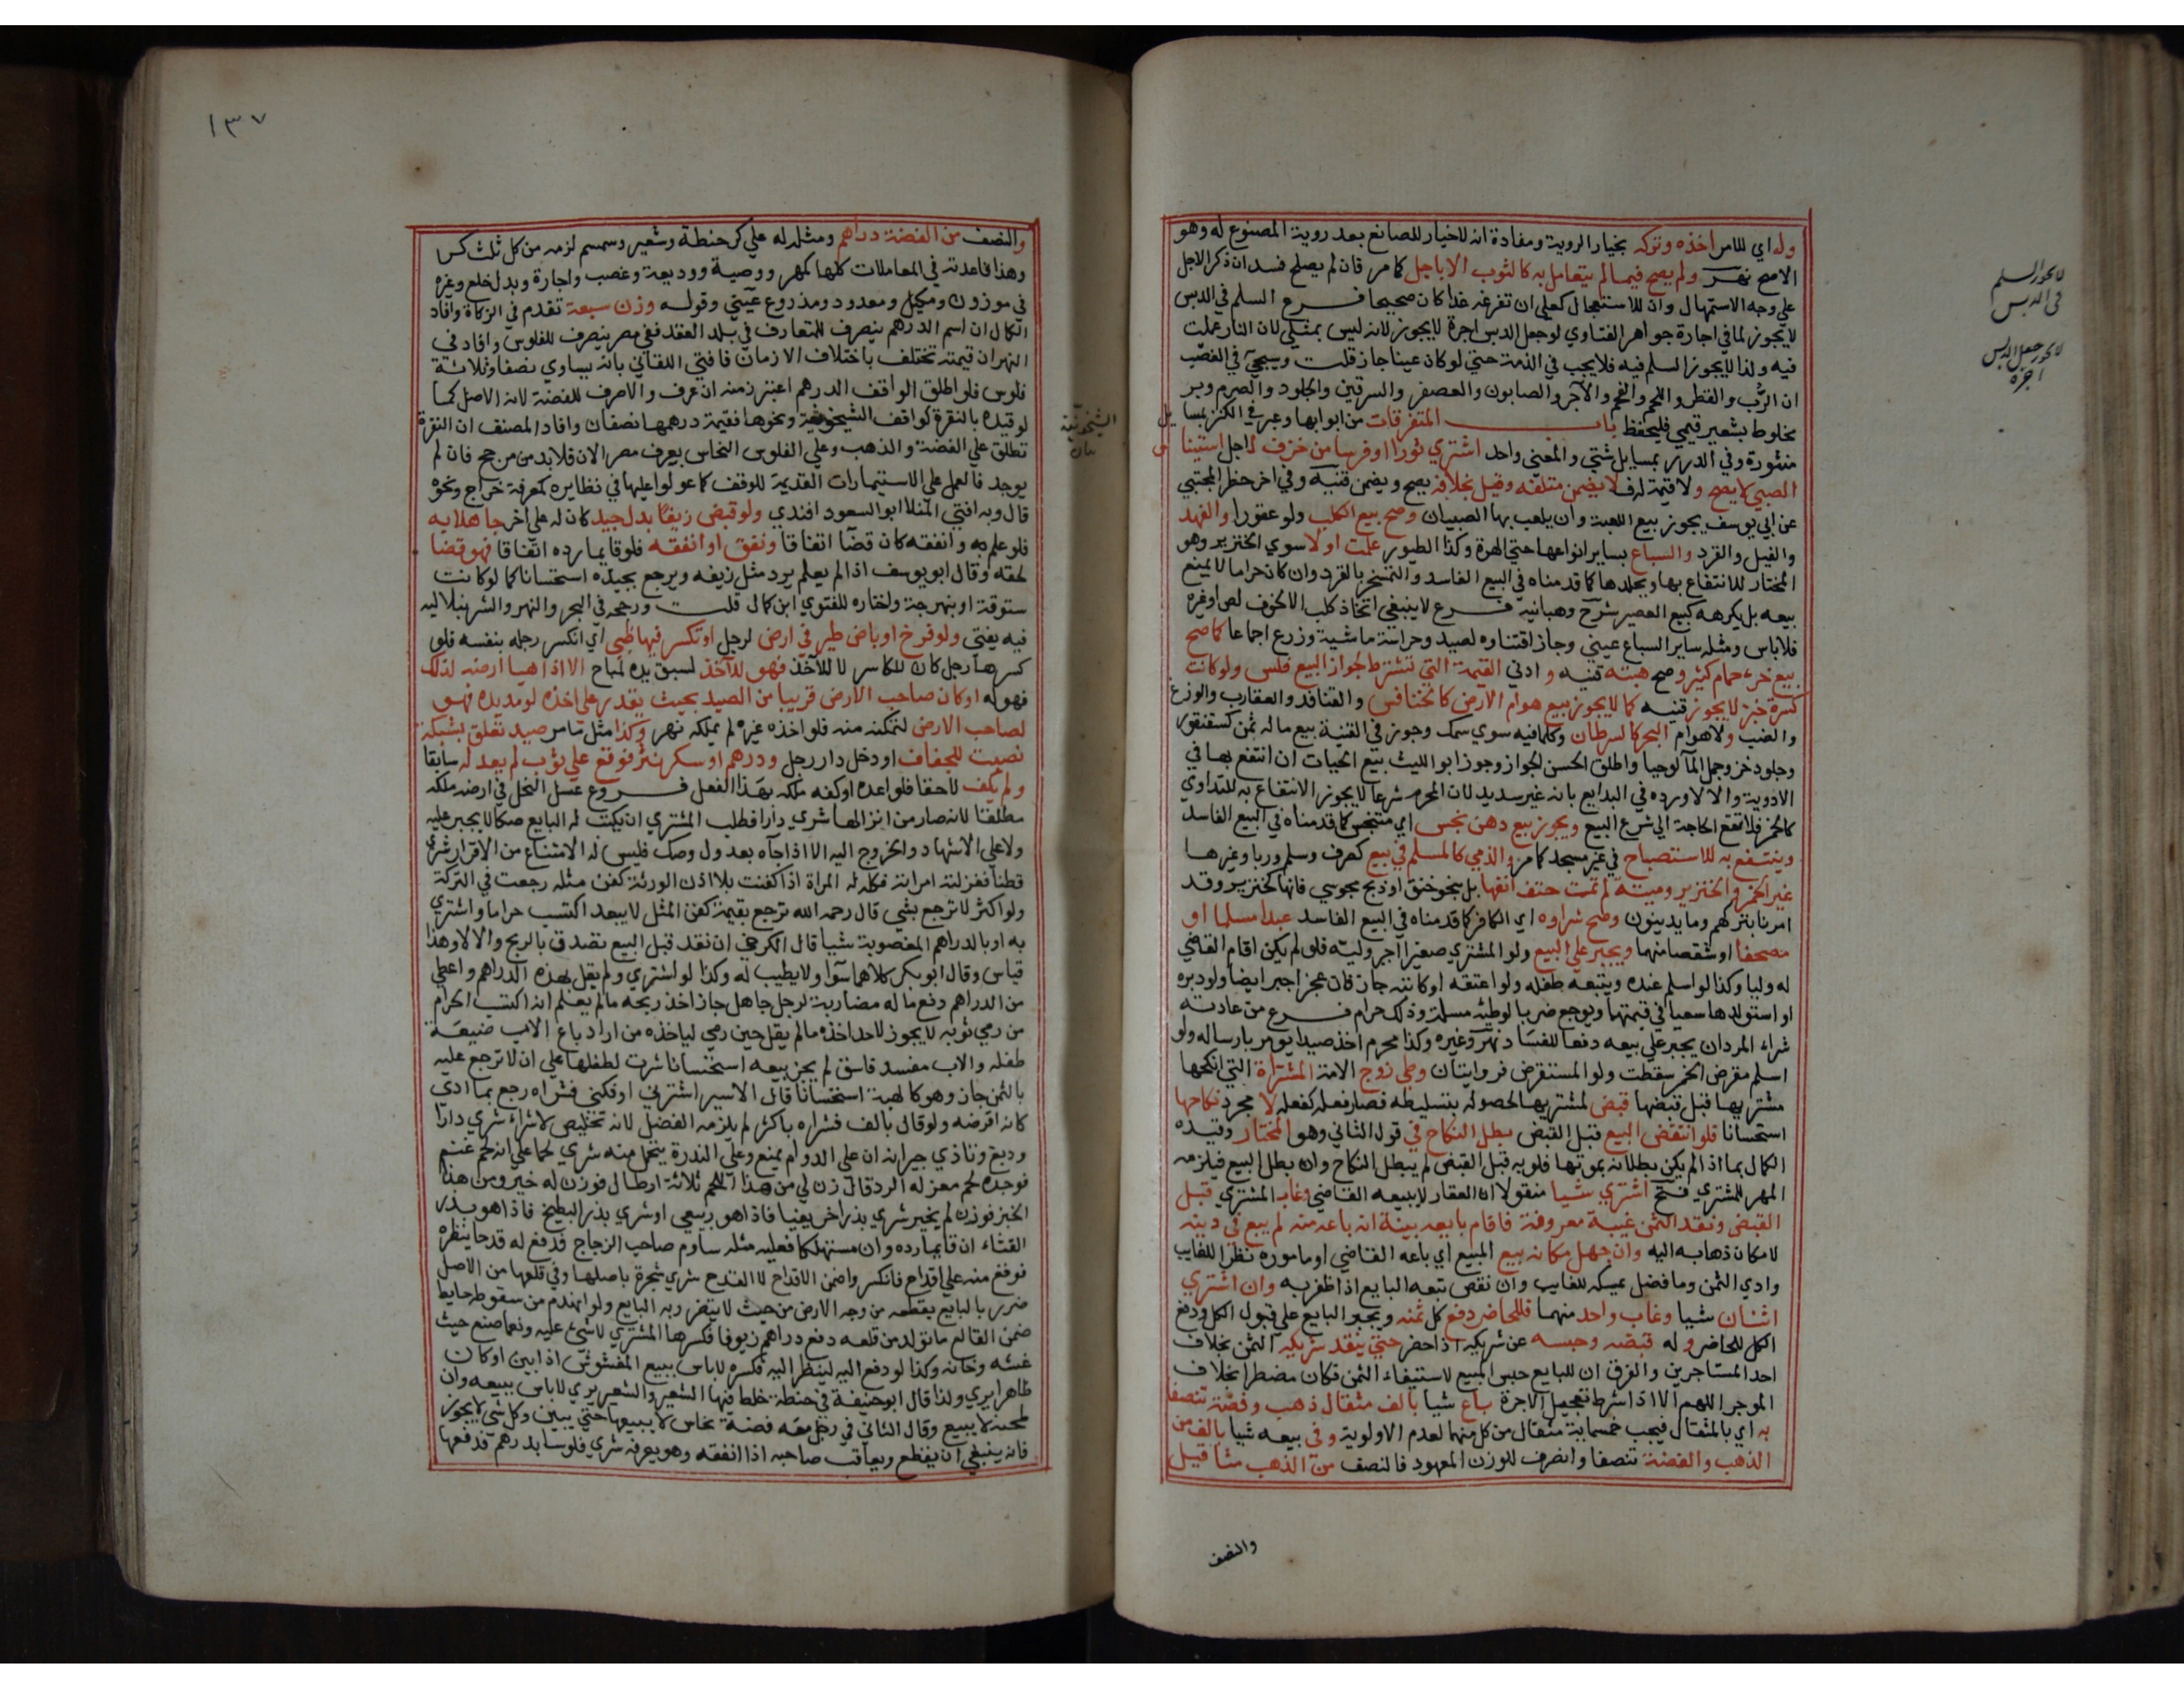 وله اي للامر اخذه وتركه بخيار الروية ومفادة انه لاخيار للصانع بعد روية المصنوع له وهو
الاصح نهر ولم يصح فيما لم يتعامل به كالثوب الا باجل كما مر فان لم يصلح فسد ان ذكر الاجل
علي وجه الاستمهال وان للاستعجال كعلي ان تفرغه غدا كان صحيحا فرع السلم في الدبس
لايجوز لما في اجارة جواهر الفتاوي لوجعل الدبس اجرة لايجوز لانه ليس بمثلي لان النار عملت
فيه ولذا لايجوز السلم فيه فلا يجب في الذمة حتي لو كان عينا جاز قلت ويسجيء في الغصب
ان الرُّب والقطر واللحم والفحم والآجر والصابون والعصفر والسرقين والجلود والصرم وبر
مخلوط بشعير قيمي فليحفظ باب المتفرقات من ابوابها وعبر في الكنز بمسا يل
منثورة وفي الدرر بمسايل شتي والمعني واحد اشتري ثورا او فرسا من خزف لاجل استينا س
الصبي لايصح ولا قيمة له فلا يضمن متلفه وقيل بخلافه يصح ويضمن قنية وفي اخر حظر المجتبي
عن ابي يوسف يجوز بيع اللعبة وان يلعب بها الصبيان وصح بيع الكلب ولو عقورا والفهد
والفيل والقرد والسباع بساير انواعها حتي الهرة وكذا الطيور علمت اولا سوي الخنزير وهو
المختار للانتفاع بها وبجلدها كما قدمناه في البيع الفاسد والتمسخر بالقرد وان كان حراما لايمنع
بيعه بل يكرهه كبيع العصير شرح وهبانية فرع لاينبغي اتخاذ كلب الا لخوف لص اوغيره
فلا باس ومثله ساير السباع عيني وجاز اقتناوه لصيد وحراسة ماشية وزرع اجماعا كما صح
بيع خرء حمام كثير وصح هبته قنيه وادني القيمة التي تشترط لجواز البيع فلس ولو كانت
كسرة خبز لايجوز قنيه كما لايجوز بيع هوام الارض كالخنافس والقنافد والعقارب والوزغ
والضب ولا هوام البحر كالسرطان وكلما فيه سوي سمك وجوز في القنية بيع ما له ثمن كسقنقور
وجلود خز وجمل المآ لوحيا واطلق الحسن الجواز وجوز ابو الليث بيع الحيات ان انتفع بها في
الادوية والا لا ورده في البدايع بانه غير سديد لان المحرم شرعا لايجوز الانتفاع به للتداوي
كالخمر فلا تقع الحاجة الي شرع البيع ويجوز بيع دهن نجس اي متنجس كما قدمناه في البيع الفاسد
وينتفع به للاستصباح في غير مسجد كما مر والذمي كالمسلم في بيع كصرف وسلم وربا وغيرها
غير الخمر والخنزير وميتة لم تمت حتف انفها بل بنحو خنق او ذبح مجوسي فانها كخنزير وقد
امرنا بتركهم وما يدينون وصح شراوه اي الكافر كما قدمناه في البيع الفاسد عبدا مسلما او
مصحفا او شقصا منهما ويجبر علي البيع ولو المشتري صغيرا اجبر وليه فلو لم يكن اقام القاضي
له وليا وكذا لو اسلم عنده ويتبعه طفله ولو اعتقه او كاتبه جاز فان عجز اجبر ايضا ولو دبره
او استولدها سعيا في قيمتها ويوجع ضربا لوطيه مسلمة وذلك حرام فرع من عادته
شراء المردان يجبر علي بيعه دفعا للفساد نهر وغيره وكذا محرم اخذ صيدا يومر بارساله ولو
اسلم مقرض الخمر سقطت ولو المستقرض فروايتان وطي زوج الامة المشتراة التي انكحها
مشتريها قبل قبضها قبض لمشتريها لحصوله بتسليطه فصار فعله كفعله لا مجرد نكاحها
استحسانا فلو انتقض البيع قبل القبض بطل النكاح في قول الثاني وهو المختار وقيده
الكمال بما اذا لم يكن بطلانه بموتها فلو به قبل القبض لم يبطل النكاح وان بطل البيع فيلزمه
المهر للمشتري فتح اشتري شيا منقولا ان العقار لايبيعه القاضي وغاب المشتري قبل
القبض ونقد الثمن غيبة معروفة فاقام بايعه بينة انه باعه منه لم يبع في دينه
لامكان ذهابه اليه وان جهل مكانه بيع المبيع اي باعه القاضي او ماموره نظرا للغايب
وادي الثمن وما فضل يمسكه للغايب وان نقص تبعه البايع اذا ظفر به وان اشتري
اثنان شيا وغاب واحد منهما فللحاضر دفع كل ثمنه ويجبر البايع علي قبول الكل ودفع
الكل للحاضر وله قبضه وحبسه عن شريكه اذا حضر حتي ينقد شريكه الثمن بخلاف
احد المستاجرين والفرق ان للبايع حبس المبيع لاستيفاء الثمن فكان مضطرا بخلاف
الموجر اللهم الا اذا شرط تعجيل الاجرة باع شيا بالف مثقال ذهب وفضة تنصفا
به اي بالمثقال فيجب خمسماية مثقال من كل منهما لعدم الاولوية وفي بيعه شيا بالف من
الذهب والفضة تنصفا وانصرف للوزن المعهود فالنصف من الذهب مثاقيل
والنصف
لايجوز السلم
في الدبس
لايجوز جعل الدبس
اجرة
١٣٧
والنصف من الفضة دراهم ومثله له علي كر حنطة وشعير وسمسم لزمه من كل ثلث كر
وهذا قاعدته في المعاملات كلها كمهر ووصية ووديعة وغصب واجارة وبدل خلع وغيره
في موزون ومكيل ومعدود ومذروع عيني وقوله وزن سبعة تقدم في الزكاة وافاد
الكمال ان اسم الدرهم ينصرف للمتعارف في بلد العقد ففي مصر ينصرف للفلوس وافاد في
النهر ان قيمته تختلف باختلاف الازمان فافتي اللقاني بانه يساوي نصفا وثلاثة
فلوس فلو اطلق الواقف الدرهم اعتبر زمنه ان عرف والا صرف للفضة لانه الاصل كما
لو قيده بالنقرة كواقف الشيخونية ونحوها فقيمة درهمها نصفان وافاد المصنف ان النقرة
تطلق علي الفضة والذهب وعلي الفلوس النحاس بعرف مصر الان فلا بد من مرجح فان لم
يوجد فالعمل علي الاستيمارات القديمة للوقف كما عولوا عليها في نظايره كمعرفة خراج ونحوه
قال وبه افتي المنلا ابو السعود افندي ولو قبض زيفا بدل جيد كان له علي اخر جاهلا به
فلو علم به وانفقه كان قضآ اتفاقا ونفق او انفقه فلو قايما رده اتفاقا فهو قضا
لحقه وقال ابو يوسف اذا لم يعلم يرد مثل زيفه ويرجع بجيده استحسانا كما لو كانت
ستوقة او بنهرجة واختاره للفتوي ابن كمال قلت ورجحه في البحر والنهر والشرنبلاليه
فبه يفتي ولو فرخ او باض طير في ارض لرجل او تكسر فيها ظبي اي انكسر رجله بنفسه فلو
كسرها رجل كان للكاسر لا للآخذ فهو للآخذ لسبق يده لمباح الا اذا هيا ارضه لذلك
فهو له او كان صاحب الارض قريبا من الصيد بحيث يقدر علي اخذه لو مد يده فهو
لصاحب الارض لتمكنه منه فلو اخذه غيره لم يملكه نهر وكذا مثل ما مر صيد تعلق بشبكة
نصبت للجفاف او دخل دار رجل ودرهم او سكر نثر فوقع علي ثوب لم يعد له سابقا
ولم يكف لاحقا فلو اعده او كفه ملكه بهذا الفعل فروع عسل النحل في ارضه ملكه
مطلقا لانه صار من انزالها شري دارا فطلب المشتري ان يكتب له البايع صكا لايجبر عليه
ولا علي الاشهاد والخروج اليه الا اذا جآه بعدول وصك فليس له الامتناع من الاقرار شري
قطنا فغزلته امراته فكله له المراة اذا كفنت بلا اذن الورثة كفن مثله رجعت في التركة
ولو اكثر لا ترجع بشي قال رحمه الله ترجع بقيمة كفن المثل لايبعد اكتسب حراما واشتري
به او بالدراهم المغصوبة شيا قال الكرخي ان نقد قبل البيع تصدق بالربح والا لا وهذا
قياس وقال ابو بكر كلاهما سوآ ولا يطيب له وكذا لو اشتري ولم يقل بهذه الدراهم واعطي
من الدراهم دفع ماله مضاربة لرجل جاهل جاز اخذ ربحه مالم يعلم انه اكتسب الحرام
من رمي ثوبه لايجوز لاحد اخذه مالم يقل حين رمي لياخذه من اراد باع الاب ضيعة
طفله والاب مفسد فاسق لم يجز بيعه استحسانا شرت لطفلها علي ان لا ترجع عليه
بالثمن جاز وهو كالهبة استحسانا قال الاسير اشترني او فكني فشراه رجع بما ادي
كانه اقرضه ولو قال بالف فشراه باكثر لم يلزمه الفضل لانه تخليص لا شراء شري دارا
ودبغ وتاذي جيرانه ان علي الدوام يمنع وعلي الندرة يتحمل منه شري لحما علي انه لحم غنم
فوجده لحم معز له الرد قال زن لي من هذا اللحم ثلاثة ارطال فوزن له خير ومن هذا
الخبز فوزن لم يخير شري بذرا خريفيا فاذا هو ربيعي او شري بذر البطيخ فاذا هو بذر
القثاء ان قايما رده وان مستهلكا فعليه مثله ساوم صاحب الزجاج فدفع له قدحا ينظره
فوقع منه علي اقداح فانكسر واضمن الاقداح لا القدح شري شجرة باصلها وفي قلعها من الاصل
ضرر بالبايع يقطعه من وجه الارض من حيث لا يتضرر به البايع ولو انهدم من سقوطه حايط
ضمن القالع ما تولد من قلعه دفع دراهم زيوفا فكسرها المشتري لا شي عليه ونعما صنع حيث
غشه وخانه وكذا لو دفع اليه لينظر اليه فكسره لا باس ببيع المغشوش اذا بين او كان
ظاهرا يري ولذا قال ابو حنيفة في حنطة خلط فيها الشعير والشعير يري لا باس ببيعه وان
طحنه لا يبيع وقال الثاني في رجل معه فضة نحاس لا يبيعها حتي يبين وكل شي لايجوز
فانه ينبغي ان يقطع ويعاقب صاحبه اذا انفقه وهو يعرفه شري فلوسا بدرهم فدفعها
الشيخونية
بيان